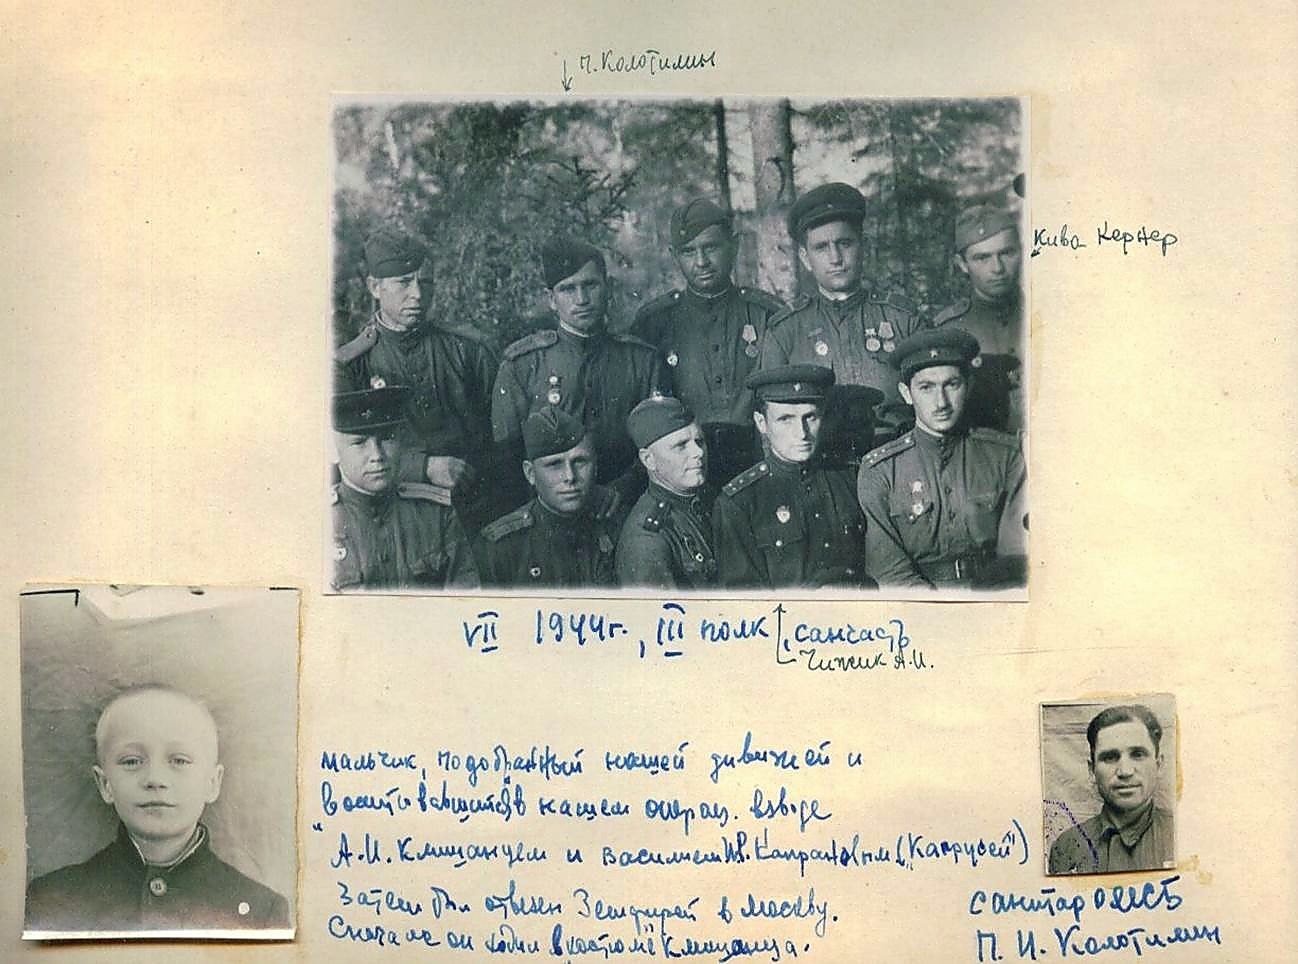 Ч. Колотилин
Кива Кернер
VII 1944г., III полк, санчасть
Чижик А.И.
мальчик, подобранный нашей дивизией и
воспитывавшийся в нашем операц. взводе
А.И. Клищанцем и Василием Ив. Капрановым („Капрусей")
Затем был отвезен Земфирой в Москву.
Сначала он ходил в костюме Клищанца.
санитар ОМСБ
П. И. Колотилин